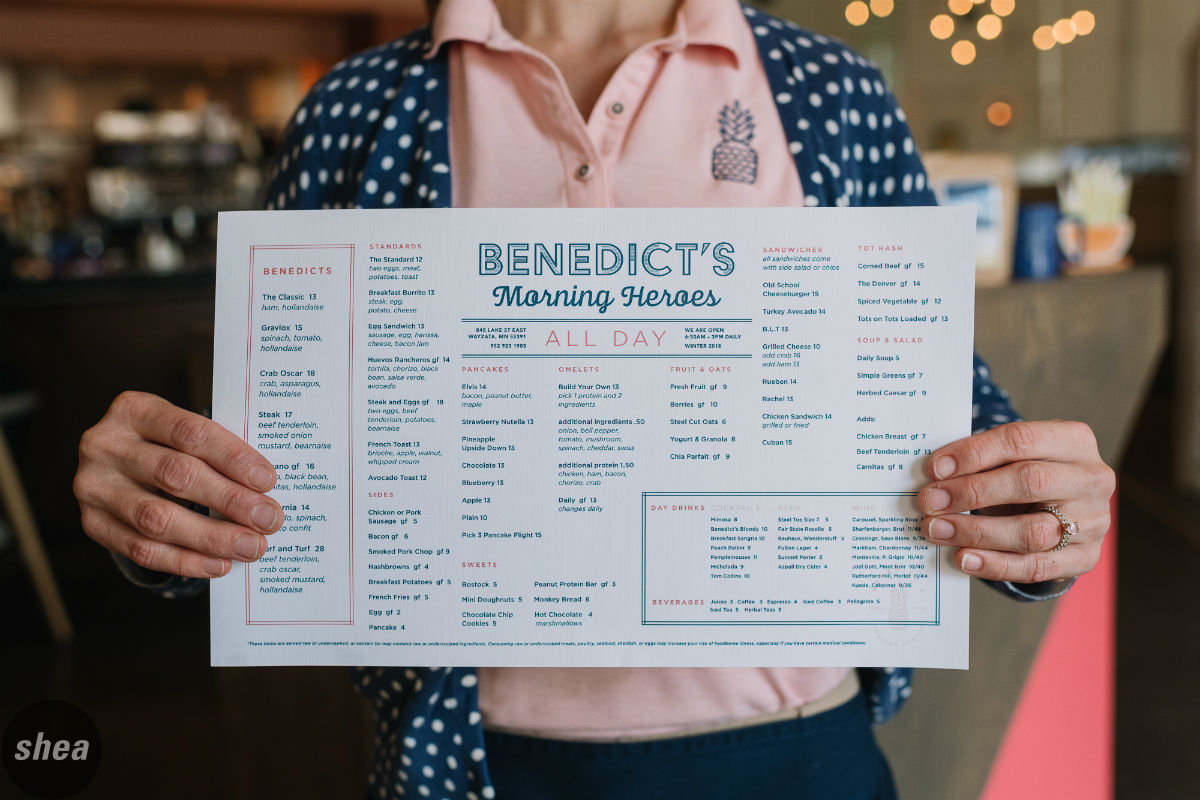 BENEDICT'S
Morning Heroes
845 LAKE ST EAST
WAYZATA, MN 55391
952 923 1903
ALL DAY
WE ARE OPEN
6:30AM – 3PM DAILY
WINTER 2018
BENEDICTS
The Classic 13
ham, hollandaise
Gravlox 15
spinach, tomato,
hollandaise
Crab Oscar 18
crab, asparagus,
hollandaise
Steak 17
beef tenderloin,
smoked onion
mustard, bearnaise
ano gf 16
, black bean,
itas, hollandaise
rnia 14
do, spinach,
o confit
urf and Turf 28
beef tenderloin,
crab oscar,
smoked mustard,
hollandaise
STANDARDS
The Standard 12
two eggs, meat,
potatoes, toast
Breakfast Burrito 13
steak, egg,
potato, cheese
Egg Sandwich 13
sausage, egg, harissa,
cheese, bacon jam
Huevos Rancheros gf 14
tortilla, chorizo, black
bean, salsa verde,
avocado
Steak and Eggs gf 18
two eggs, beef
tenderloin, potatoes,
bearnaise
French Toast 13
brioche, apple, walnut,
whipped cream
Avocado Toast 12
SIDES
Chicken or Pork
Sausage gf 5
Bacon gf 6
Smoked Pork Chop gf 9
Hashbrowns gf 4
Breakfast Potatoes gf 5
French Fries gf 5
Egg gf 2
Pancake 4
PANCAKES
Elvis 14
bacon, peanut butter,
maple
Strawberry Nutella 13
Pineapple
Upside Down 13
Chocolate 13
Blueberry 13
Apple 13
Plain 10
Pick 3 Pancake Flight 15
OMELETS
Build Your Own 13
pick 1 protein and 2
ingredients
additional ingredients .50
onion, bell pepper,
tomato, mushroom,
spinach, cheddar, swiss
additional protein 1.50
chicken, ham, bacon,
chorizo, crab
Daily gf 13
changes daily
SWEETS
Bostock 5
Mini Doughnuts 5
Chocolate Chip
Cookies 5
Peanut Protein Bar gf 3
Monkey Bread 6
Hot Chocolate 4
marshmallows
FRUIT & OATS
Fresh Fruit gf 9
Berries gf 10
Steel Cut Oats 6
Yogurt & Granola 8
Chia Parfait gf 9
SANDWICHES
all sandwiches come
with side salad or chips
Old School
Cheeseburger 15
Turkey Avocado 14
B.L.T 13
Grilled Cheese 10
add crab 16
add ham 13
Rueben 14
Rachel 13
Chicken Sandwich 14
grilled or fried
Cuban 15
TOT HASH
Corned Beef gf 15
The Denver gf 14
Spiced Vegetable gf 12
Tots on Tots Loaded gf 13
SOUP & SALAD
Daily Soup 5
Simple Greens gf 7
Herbed Caesar gf 9
Adds:
Chicken Breast gf 7
Beef Tenderloin gf 13
Carnitas gf 8
DAY DRINKS
COCKTAILS
Mimosa 8
Benedict's Bloody 10
Breakfast Sangria 10
Peach Bellini 9
Pamplemousse 11
Michelada 9
Tom Collins 10
BEER
Steel Toe Size 7 5
Fair State Roselle 5
Bauhaus, Wonderstuff 5
Fulton Lager 4
Summit Porter 5
Aspall Dry Cider 4
WINE
Carousel, Sparkling Rosa 7
Sharfenborger, Brut 11/48
Crossings, Sauv Blanc 9/36
Markham, Chardonnay 11/44
Montevina, P. Grigio 10/40
Joel Gott, Pinot Noir 10/40
Rutherford Hill, Merlot 11/44
Kunde, Cabernet 9/36
BEVERAGES
Juices 3 Coffee 3 Espresso 4 Iced Coffee 3 Pellegrino 5
Iced Tea 3 Herbal Teas 3
*These items are served raw or undercooked, or contain (or may contain) raw or undercooked ingredients. Consuming raw or undercooked meats, poultry, seafood, shellfish, or eggs may increase your risk of foodborne illness, especially if you have certain medical conditions.
shea